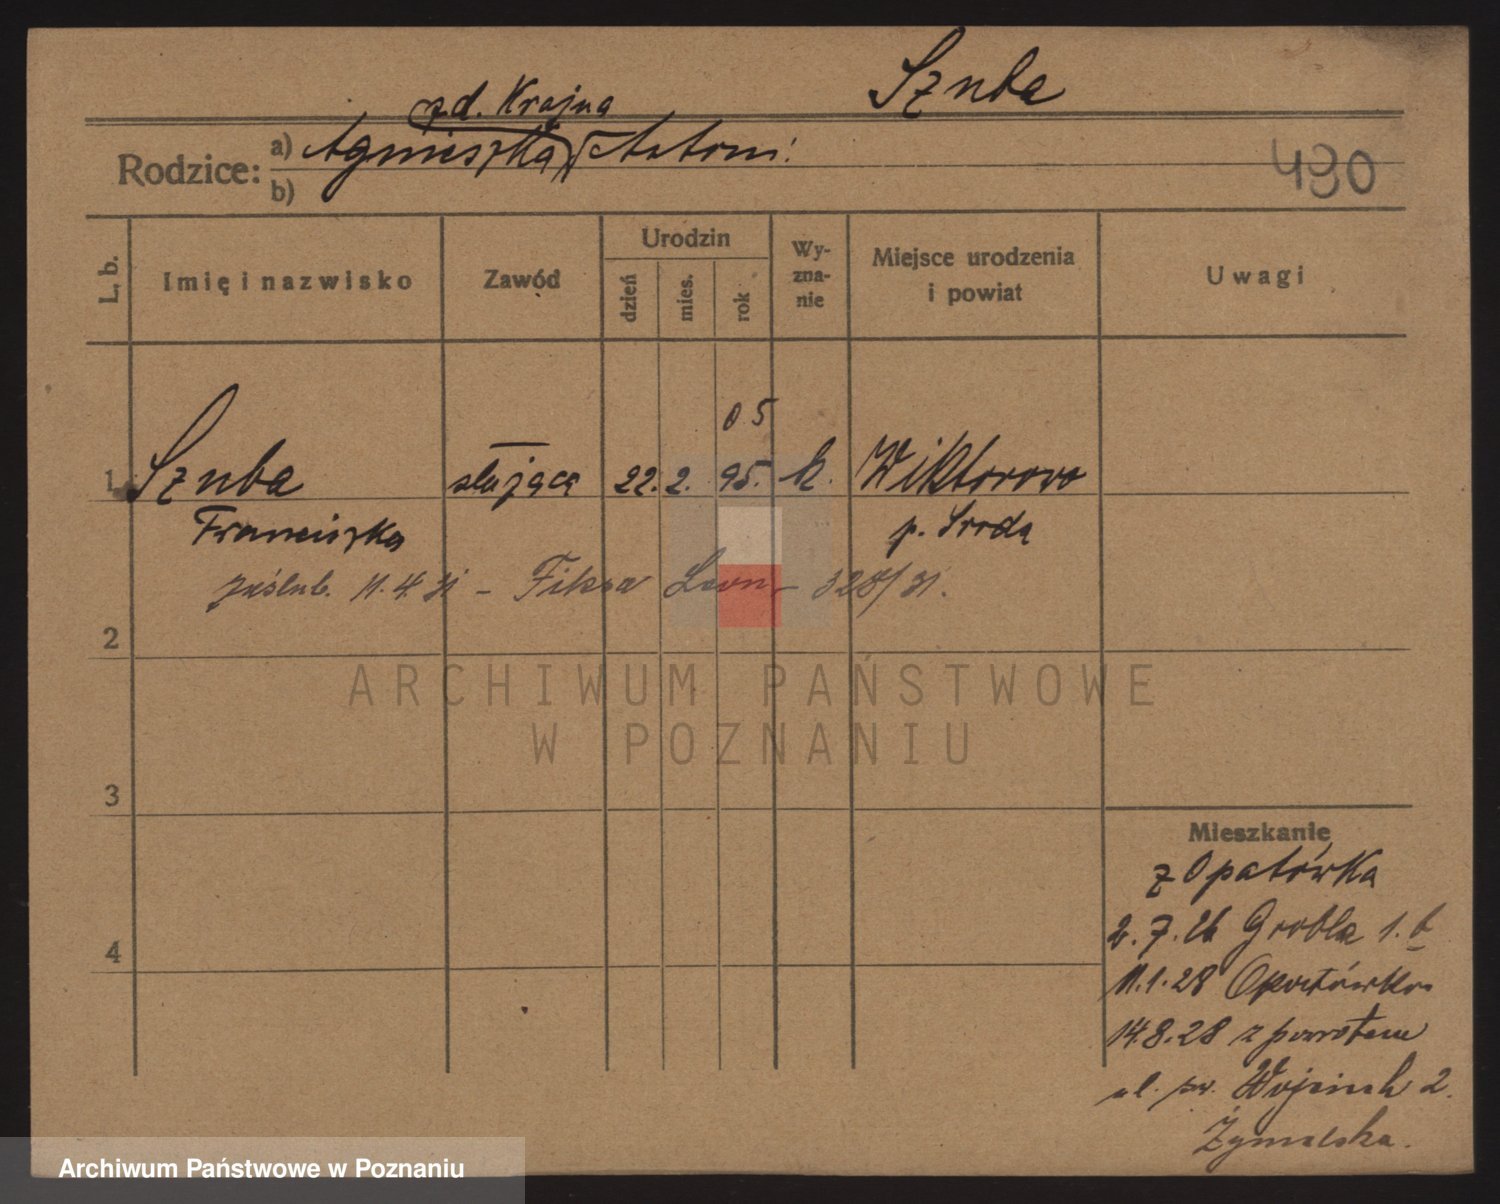 Szuba
z d. Krajna
Rodzice: a) Agnieszka Antoni
b)
490
L. b.
Imię i nazwisko
Zawód
Urodzin
dzień
mies.
rok
Wy-
zna-
nie
Miejsce urodzenia
i powiat
Uwagi
05
1 Szuba służąca 22. 2. 95. k. Wiktorowo
Franciszka p. Środa
zaślub. 11.4.31 - Fiksa Leon 328/31.
2
ARCHIWUM PAŃSTWOWE
W POZNANIU
3
Mieszkanie
z Opatówka
2.7.26 Grobla 1.b
4
11.1.28 Opatówko
14.8.28 z powrotem
ul. św. Wojciech 2.
Żymalska.
Archiwum Państwowe w Poznaniu